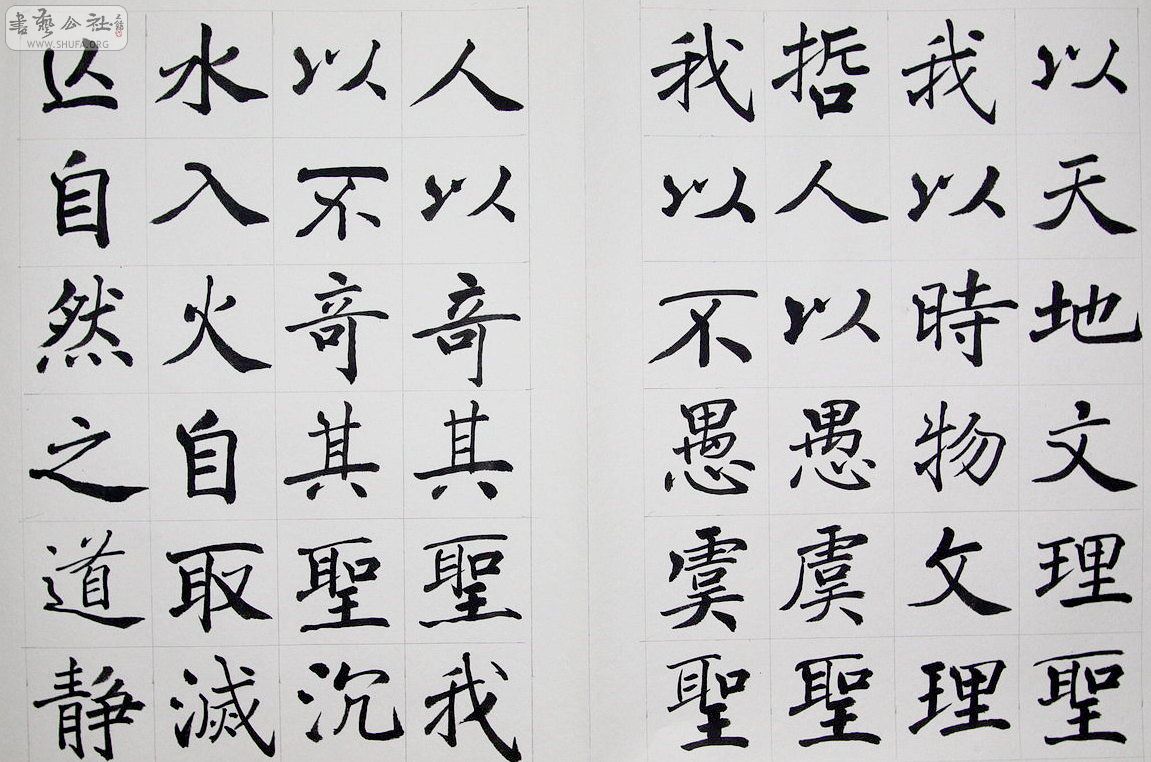 以天地文理聖
我以時物文理
哲人以愚虞聖
我以不愚虞聖
人以奇其聖我
以不奇其聖沉
水入火自取滅
亾自然之道靜
書藝公社
WWW.SHUFA.ORG